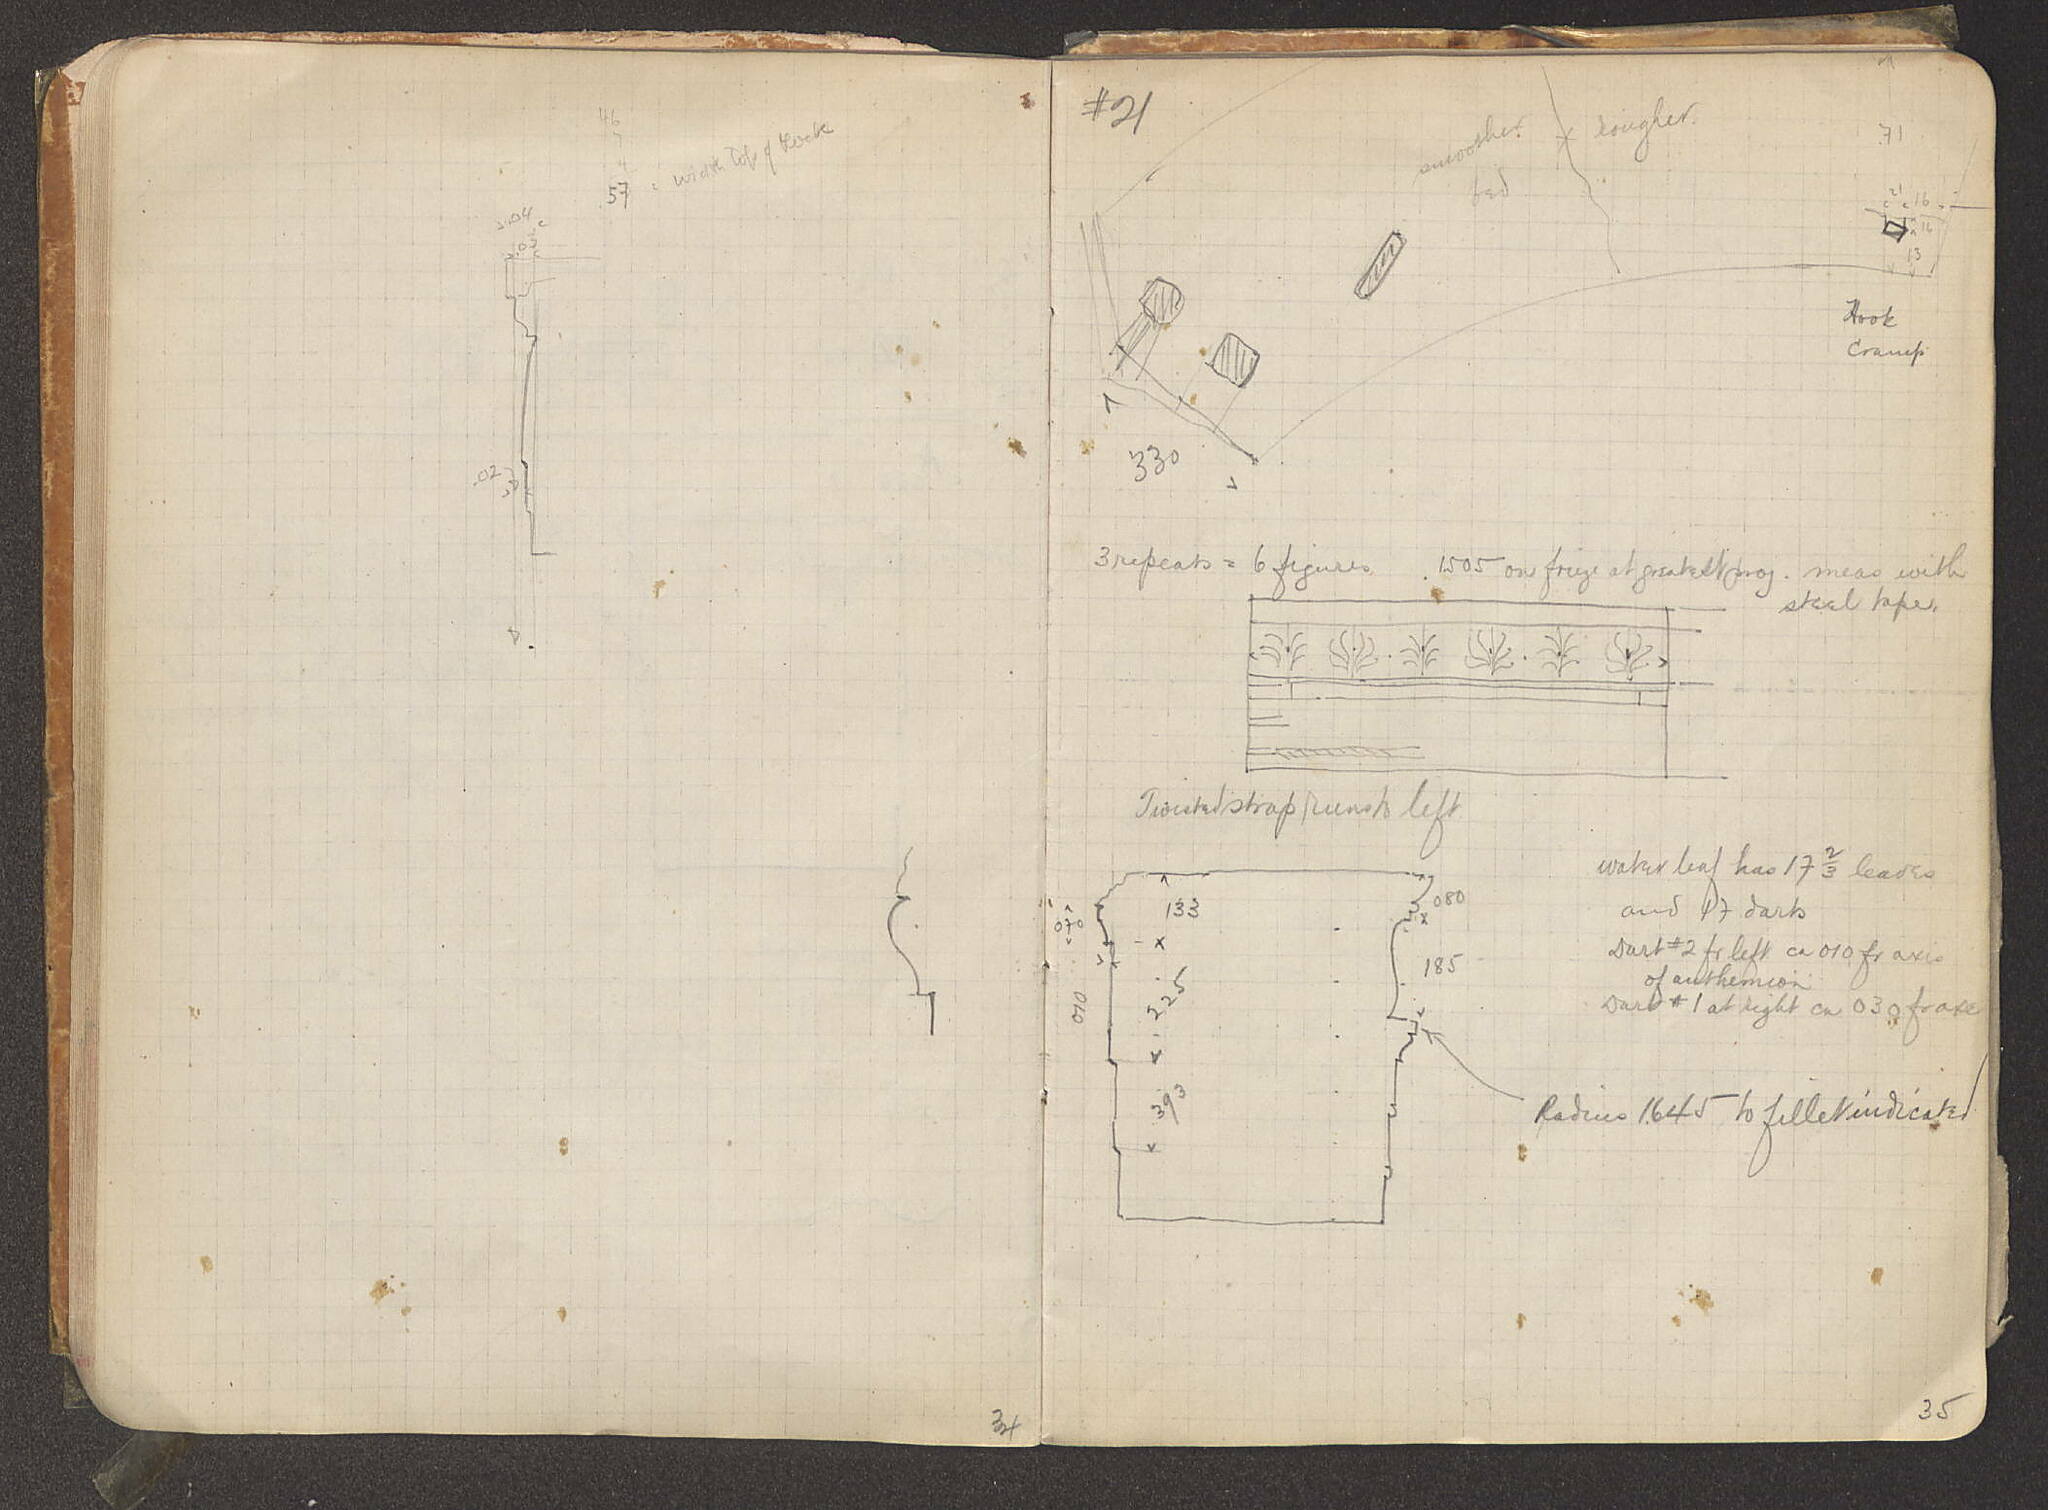 46
7
4
.57 = width Top of
.04
.03
.02
34
#21
smoother
rougher.
bed
.71
21 16
16
13
Hook
Cramp
330
3 repeats = 6 figures .1505 on frieze at greatest proj. meas with
steel tape.
Twisted strap runs to left
133
080
070
225
185
010
393
water leaf has 17 2/3 leaves
and 17 darts
Dart #2 fr left ca 010 fr axis
of anthemion
Dart #1 at right ca 030 fr axe
Radius 1.645 to fillet indicated
35